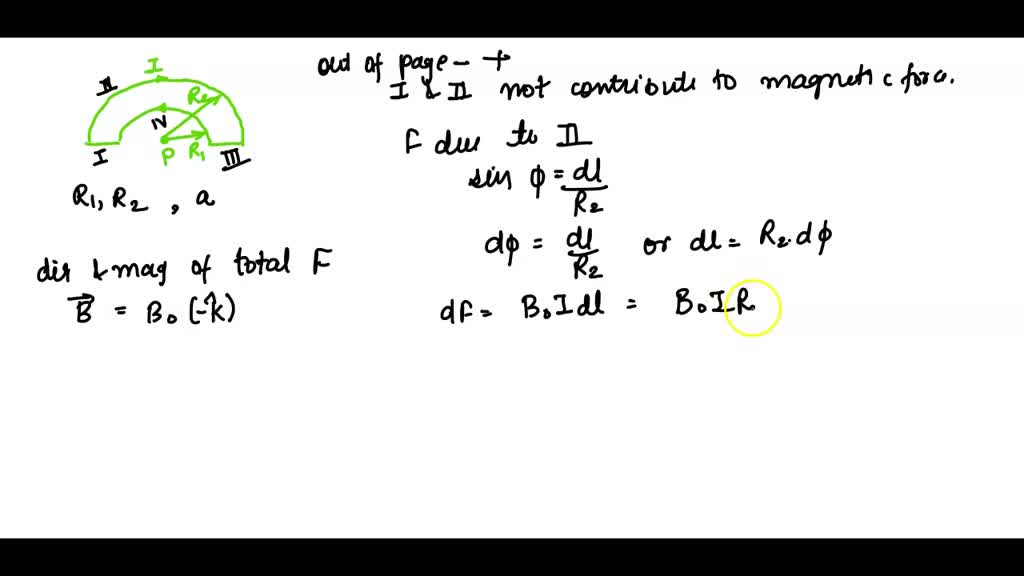 I
II
R2
IV
P R1
I
III
R1, R2 , a
dir & mag of total F
B⃗ = B0 (-k̂)
out of page - +
I & II not contribute to magnetic c force.
F due to II
sin ϕ = dl/R2
dϕ = dl/R2 or dl = R2.dϕ
dF = B0Idl = B0IR